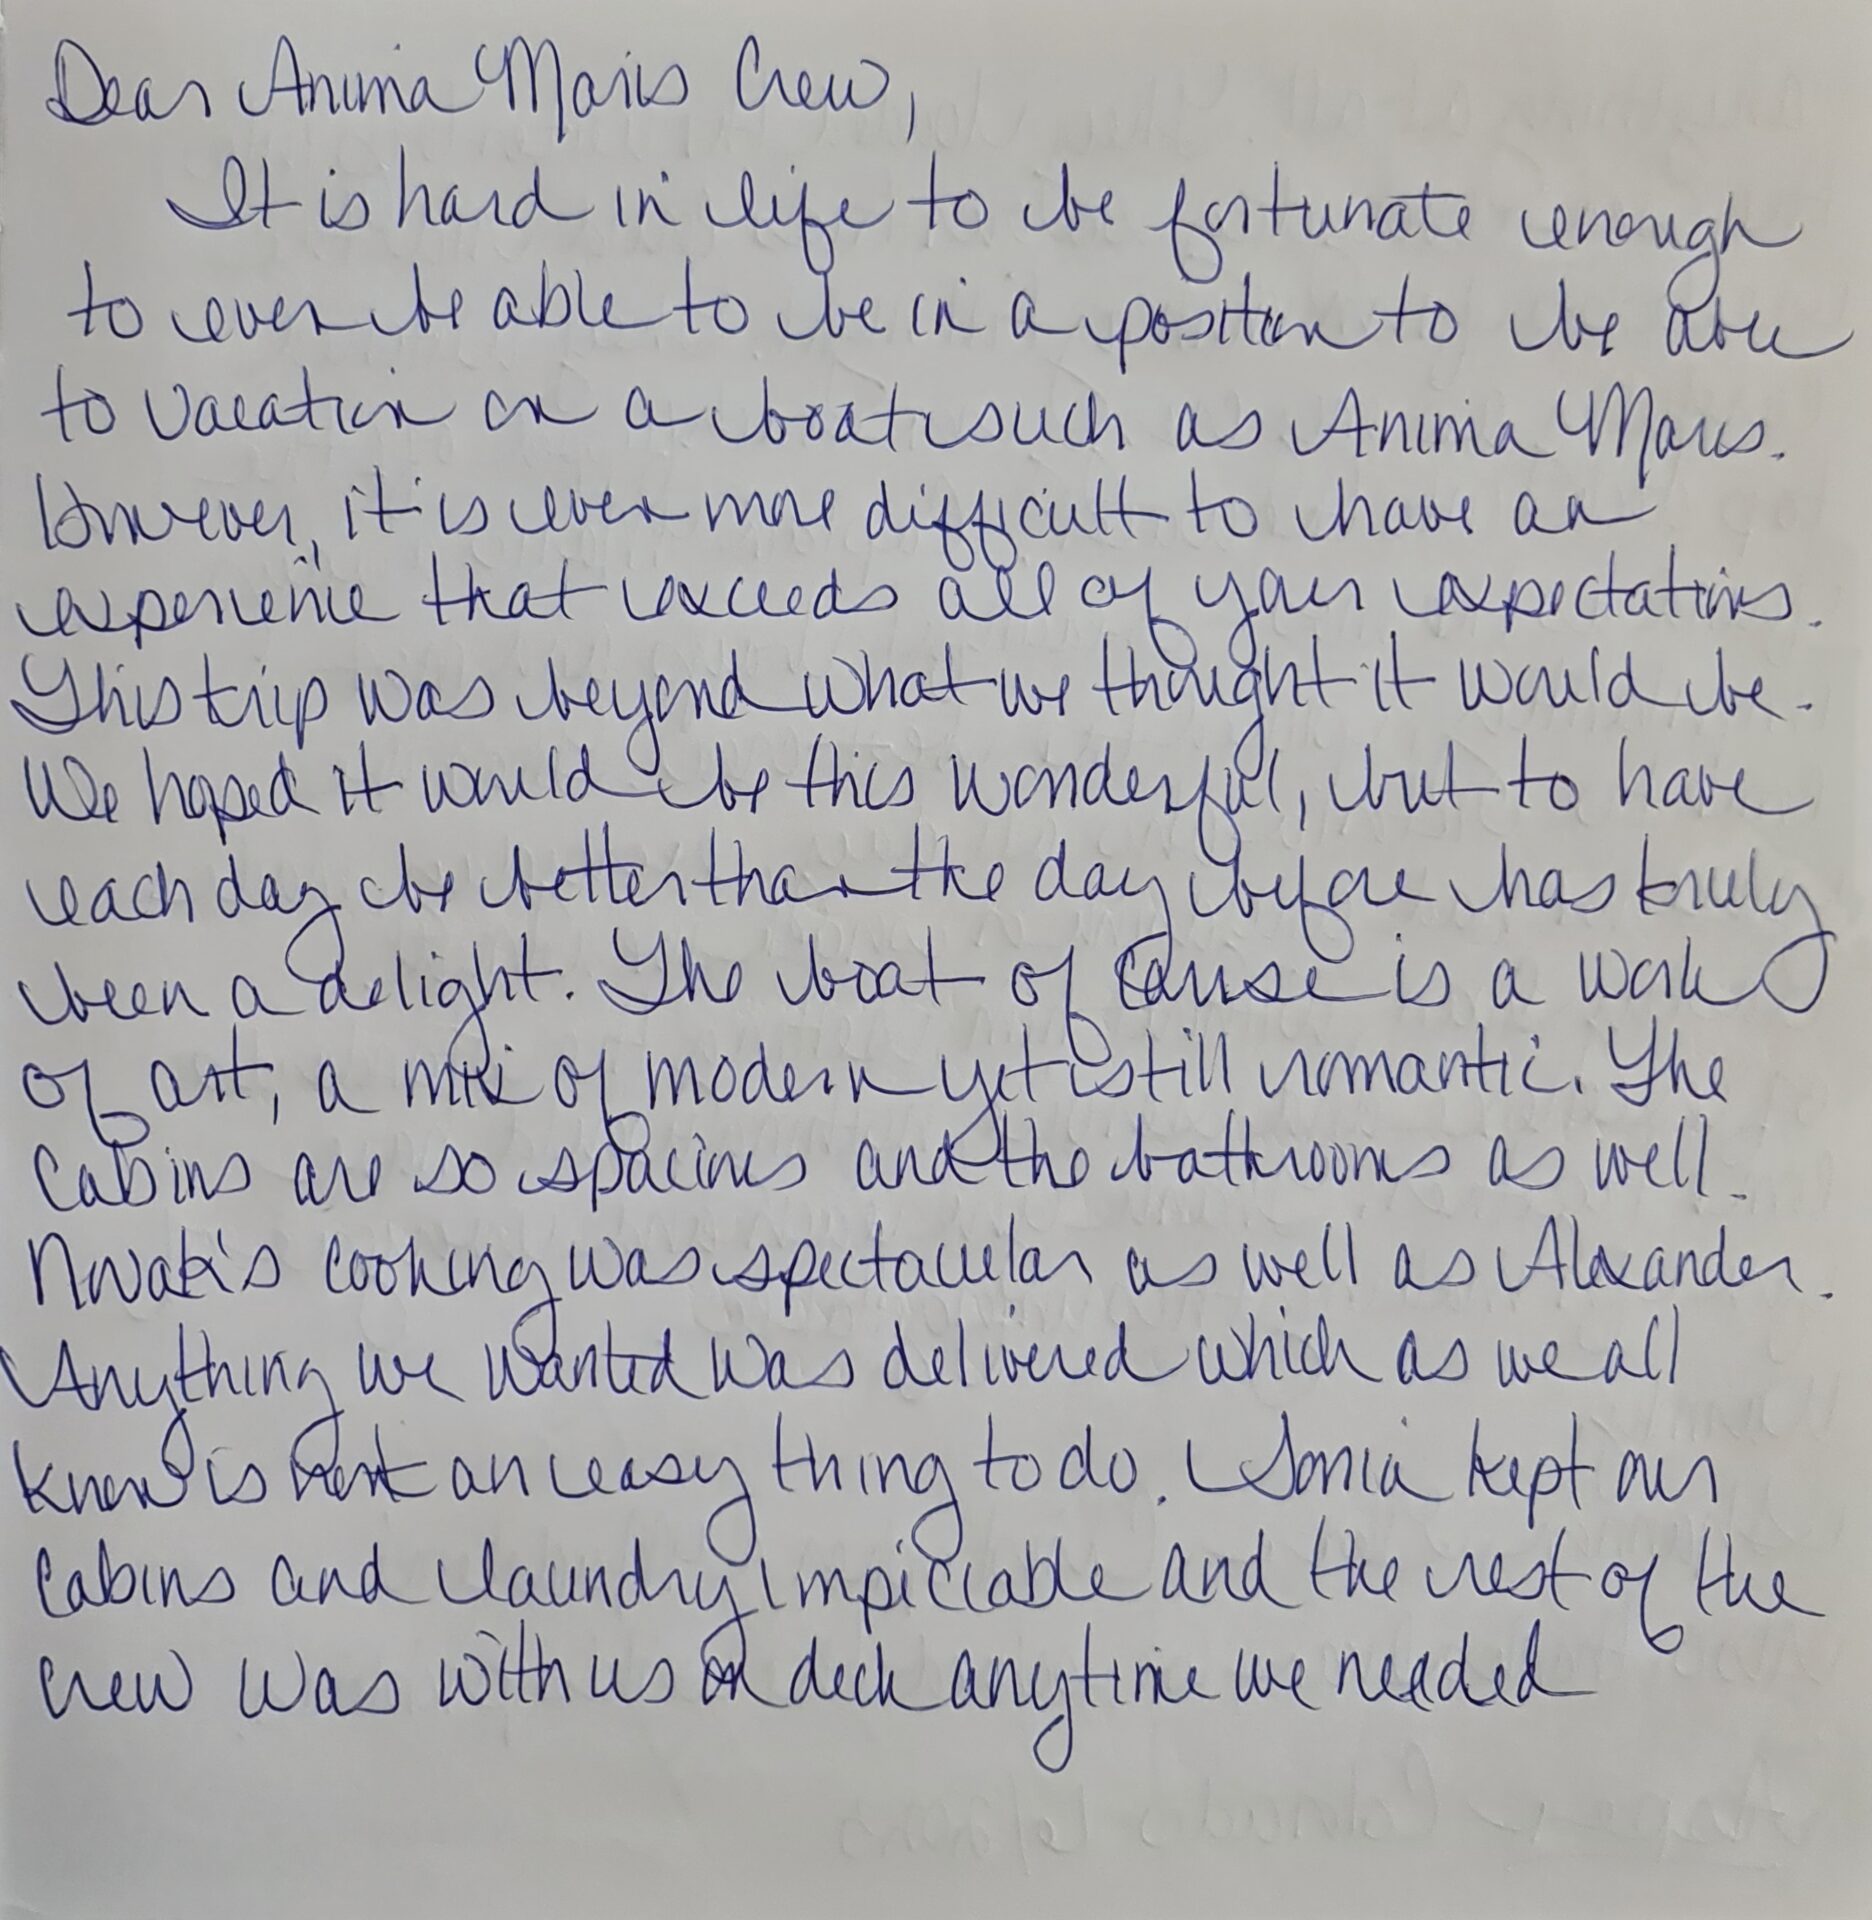 Dear Anima Maris Crew,
It is hard in life to be fortunate enough
to ever be able to be in a position to be able
to vacation on a boat such as Anima Maris.
However, it is even more difficult to have an
experience that exceeds all of your expectations.
This trip was beyond what we thought it would be.
We hoped it would be this wonderful, but to have
each day be better than the day before has truly
been a delight. The boat of course is a work
of art, a mix of modern yet still romantic. The
cabins are so spacious and the bathrooms as well.
Novak's cooking was spectacular as well as Alexander.
Anything we wanted was delivered which as we all
know is not an easy thing to do. Sonia kept our
cabins and laundry impiccable and the rest of the
crew was with us on deck anytime we needed